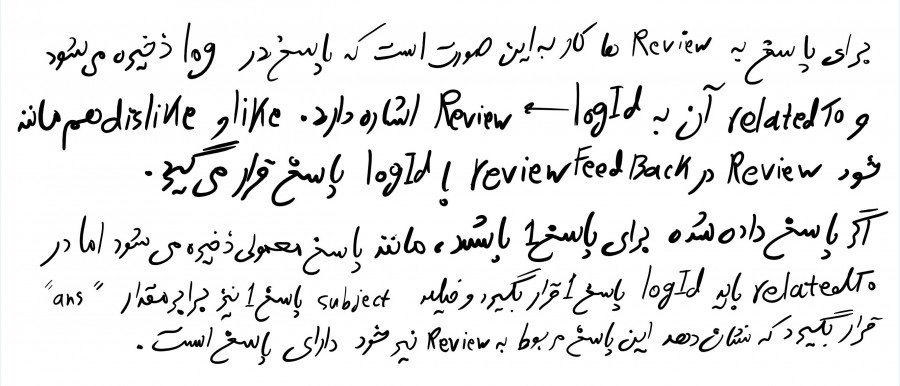 برای پاسخ به Review ها کار به این صورت است که پاسخ در log ذخیره می شود
و relatedTo آن به logId ← Review اشاره دارد. like و dislike هم مانند
خود Review در reviewFeedBack با logId پاسخ قرار می گیرد.
اگر پاسخ داده شده برای پاسخ 1 باشد، مانند پاسخ معمولی ذخیره می شود اما در
relatedTo باید logId پاسخ 1 قرار بگیرد و فیلد subject پاسخ 1 نیز برابر مقدار "ans"
قرار بگیرد که نشان دهد این پاسخ مربوط به Review نیز خود دارای پاسخ است.